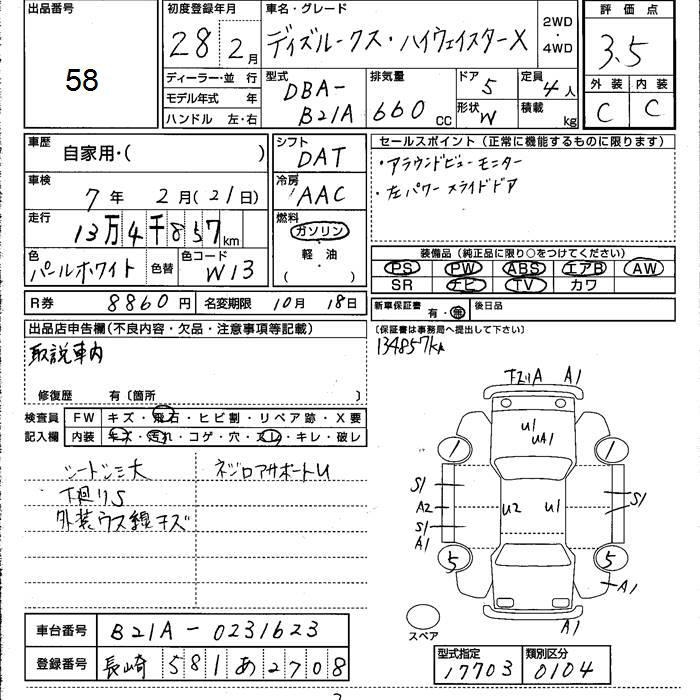 出品番号
58
初度登録年月
28 2月
車名・グレード
デイズルークス・ハイウェイスターX
2WD
・
4WD
評価点
3.5
外装 内装
C C
ディーラー・並 行
モデル年式 年
ハンドル 左・右
型式
DBA-
B21A
排気量
660 CC
ドア 5
形状 W
定員 4人
積載 kg
車歴
自家用・( )
車検
7年 2月(21日)
走行
13万4千857km
色
パールホワイト
色替
色コード
W13
シフト
DAT
冷房
AAC
燃料
ガソリン
軽・油
( )
セールスポイント(正常に機能するものに限ります)
・アラウンドビューモニター
・左パワースライドドア
装備品(純正品に限り○をつけてください)
PS PW ABS エアB AW
SR ナビ TV カワ
R券 8860円 名変期限 10月 18日
新車保証書 有・無 後日品
(保証書は事務局へ提出して下さい)
134857km
出品店申告欄(不良内容・欠品・注意事項等記載)
取説車内
修復歴 有〔箇所 〕
検査員 FW キズ・飛石・ヒビ割・リペア跡・X要
記入欄 内装 キズ・汚れ・コゲ・穴・スレ・キレ・破レ
シートシミ大
下廻りS
外装ウス線キズ
下ズリA A1
U1
UA1
1 1
S1
A2
S1
A1
U2 U1
S1
5 5
A1
A1
スペア
車台番号 B21A-0231623
登録番号 長崎 581あ2708
型式指定
17703
類別区分
0104